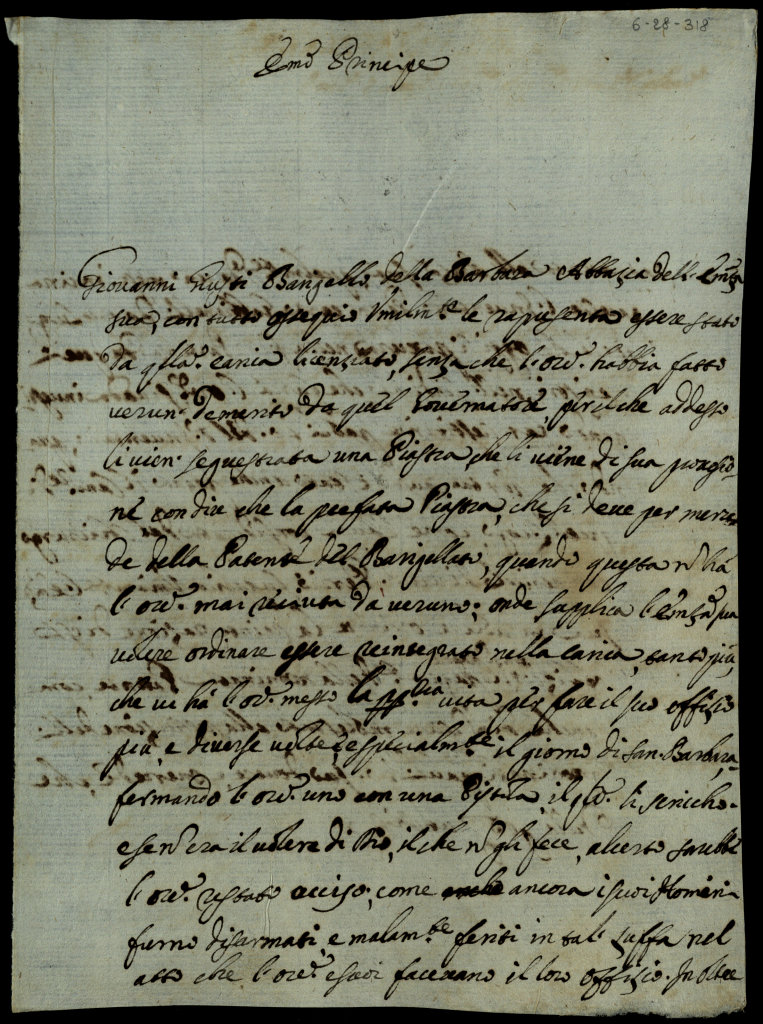 6-28-318
Em̃o Principe
Giovanni Giusti Bargello della Barbara Abbazia dell' Em̃za
sua, con tutto ossequio Umilm.te le rapresenta essere stato
da q̃lla carica licenziato, senza che l'or.e habbia fatto
verun' demerito da quel Governatore, perilche addesso
li vien' sequestrata una Piastra che li viene di sua porgio-
ne con dire che la prefata Piastra, che si deve per merce-
de della Patente del Bargellato, quando questa ñ ha
l'or.e mai riceuta da veruno; onde supplica l'Em̃za sua
volere ordinare essere reintegrato nella carica, tanto più,
che vi há l'or.e messo la pp.ria vita per fare il suo offizio
più, e diverse volte, e specialm.te il giorno di San. Barbara,
fermando l'or.e uno con una Pistola, il q̃le li sericcho-
e se ñ era il volere di Dio, il che ñ gli fece, al certo sarebbe
l'or.e restato occiso, come ancora i suoi Homini
furno disarmati, e malam.te feriti in tal' zuffa nel
atto che l'or.e e suoi facevano il loro offizio. Inoltre